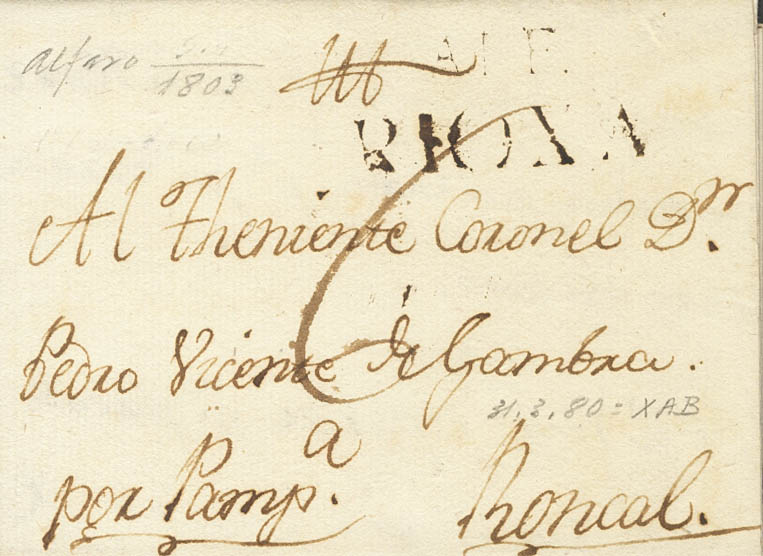 Alfaro
1803
ALF.
RIOXA
6
Al Theniente Coronel Dn.
Pedro Vicente de Gambra.
31.3.80 = XAB
por Pampa. Roncal.